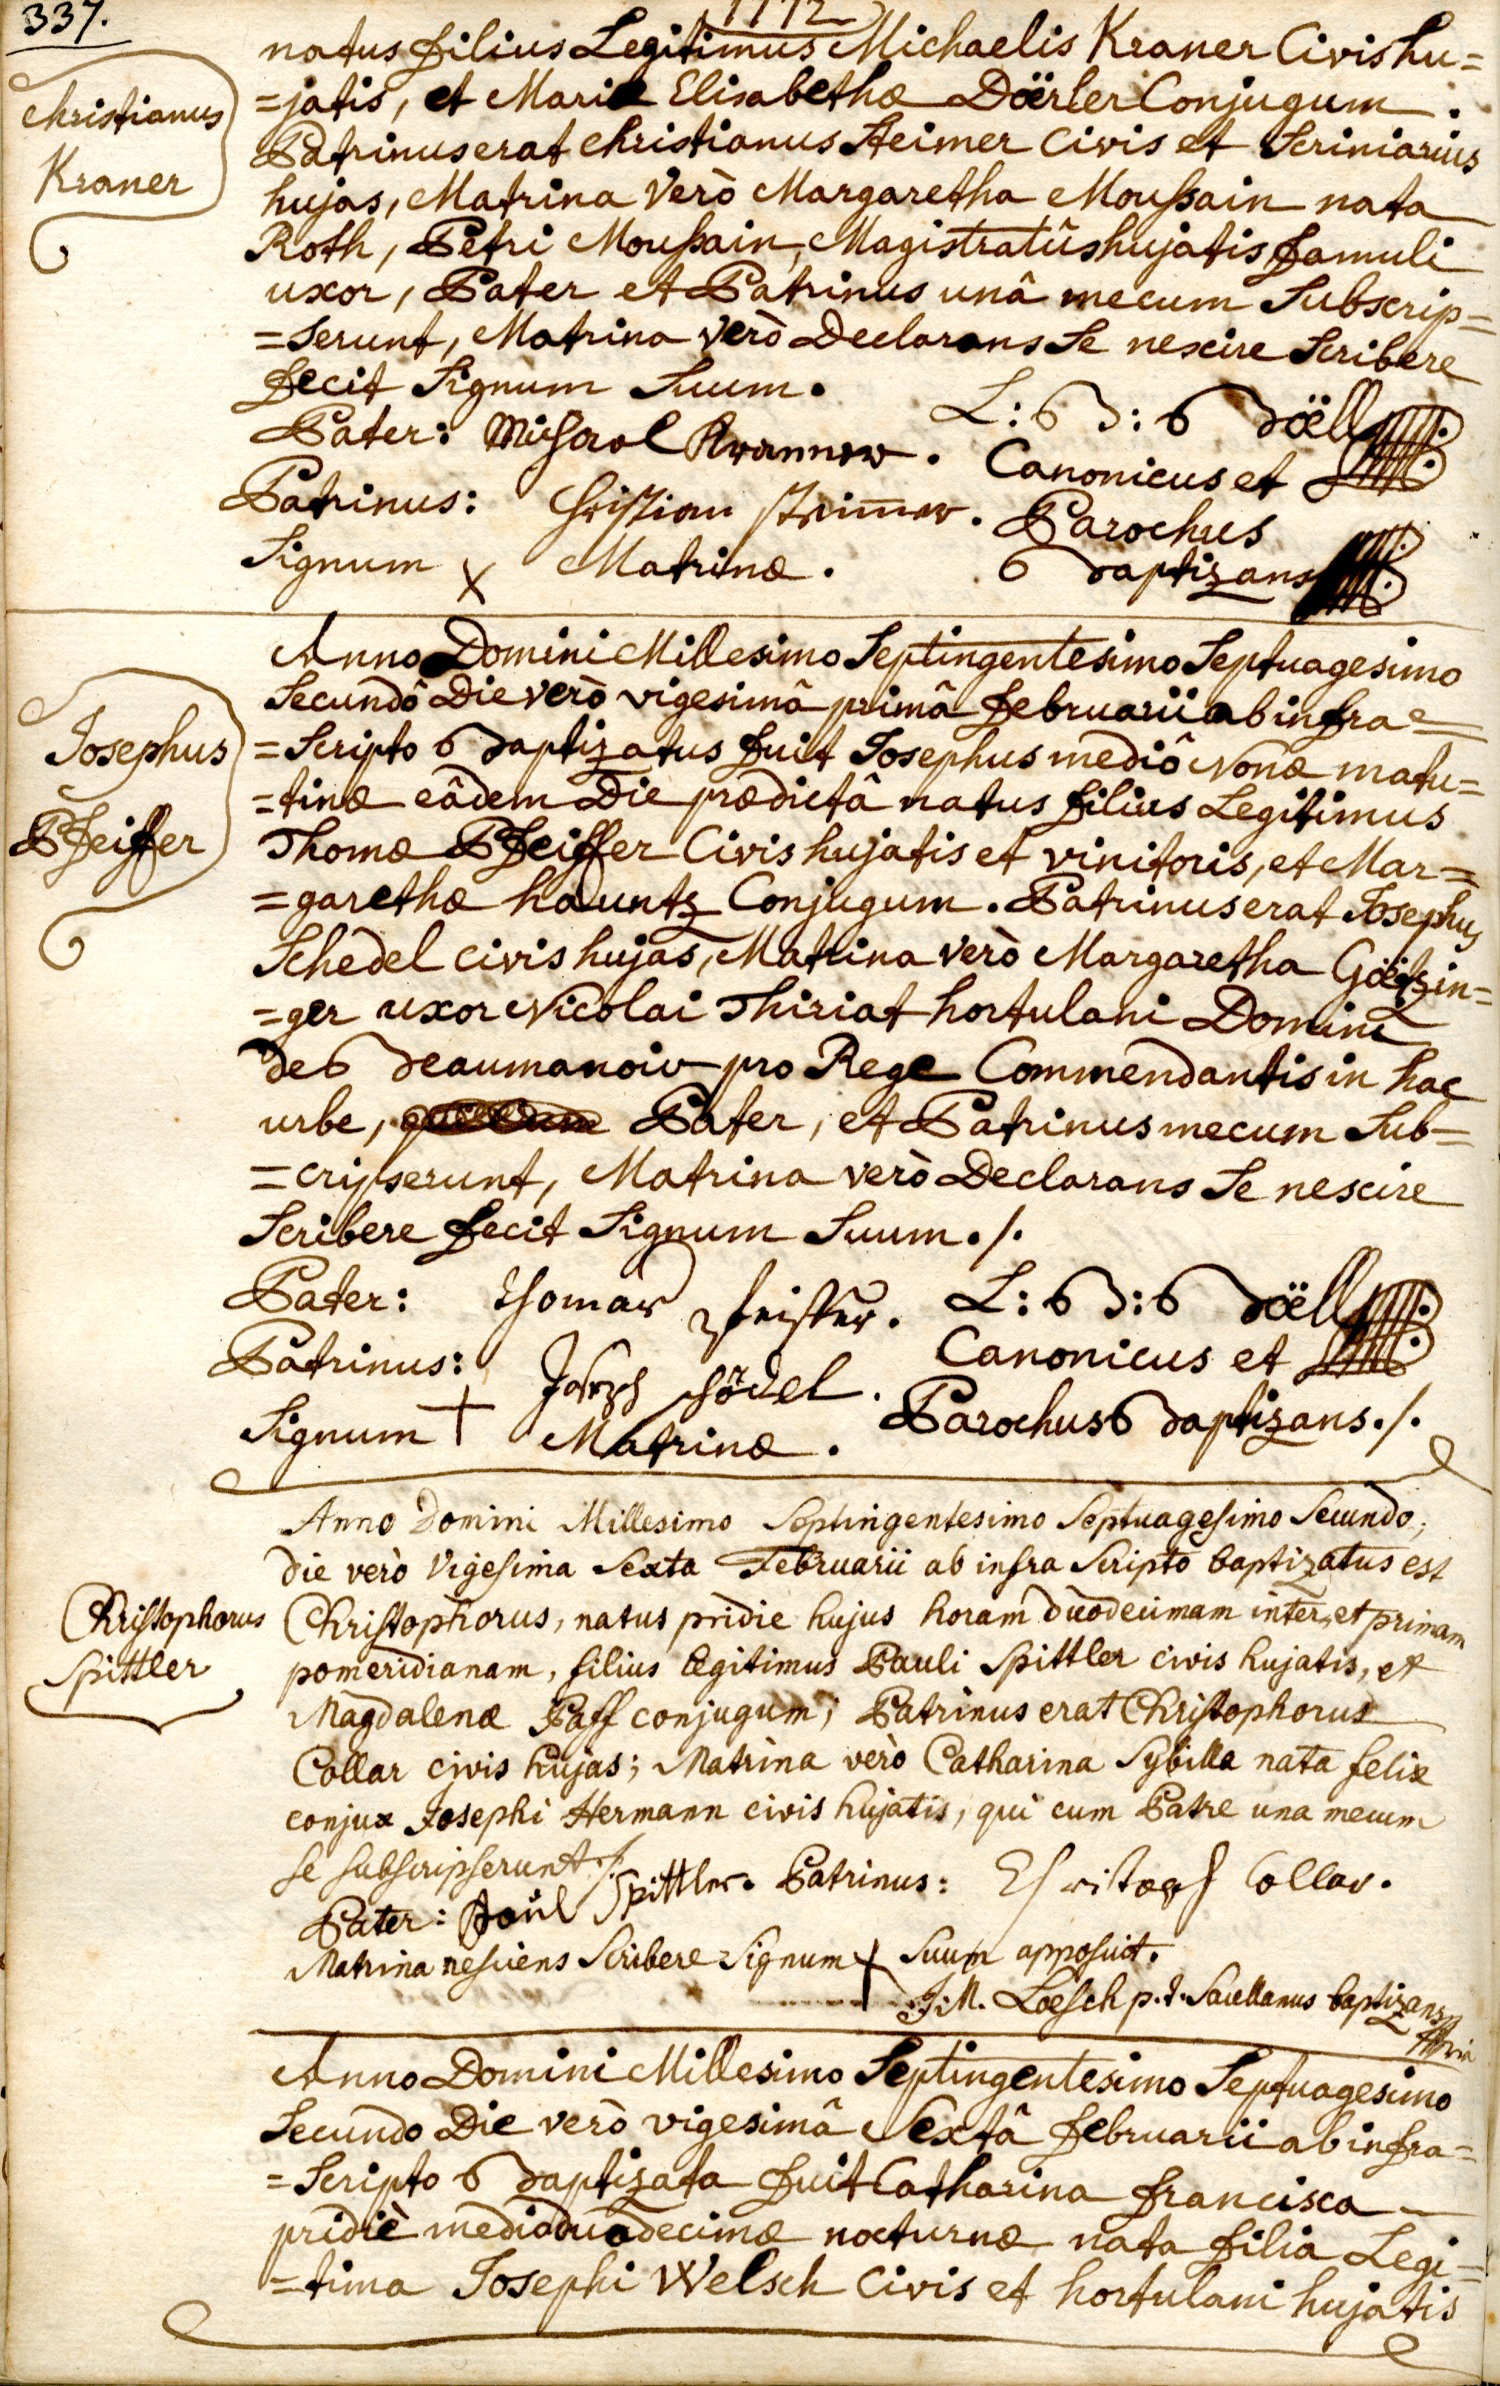 337.
1772
Christianus
Kraner
natus filius Legitimus Michaelis Kraner Civis hu=
=jatis, et Mariæ Elisabethæ Döerler Conjugum.
Patrinus erat christianus Steimer Civis et Scriniarius
hujas, Matrina Verò Margaretha Moussain nata
Roth, Petri Moussain, Magistratûs hujatis famuli
uxor, Pater et Patrinus unâ mecum Subscrip=
=serunt, Matrina verò Declarans Se nescire Scribere
fecit Signum Suum.
Pater: Michael Kranner.
L: B: Böell
Canonicus et
Patrinus: Christian Steimer.
Parochus
Signum x Matrinæ.
Baptizans
Josephus
Pfeiffer
Anno Domini Millesimo Septingentesimo Septuagesimo
Secundô Die verò vigesimâ primâ februarii ab infra=
=Scripto Baptizatus fuit Josephus mediô Nonæ matu=
=tinæ eâdem Die prædictâ natus filius Legitimus
Thomæ Pfeiffer Civis hujatis et vinitoris, et Mar=
=garethæ hauntz Conjugum. Patrinus erat Josephus
Schedel civis hujas, Matrina verò Margaretha Göetzin=
=ger uxor Nicolai Thiriat hortulani Domini
de Beaumanoir pro Rege Commendantis in hac
urbe, Pater, et Patrinus mecum Sub=
=cripserunt, Matrina verò Declarans Se nescire
Scribere fecit Signum Suum./.
Pater: Thomas Pfeiffer.
L: B: Böell
Canonicus et
Patrinus: Joseph schödel.
Parochus Baptizans./.
Signum + Matrinæ.
Christophorus
Spittler
Anno Domini Millesimo Septingentesimo Septuagesimo Secundo,
die verò Vigesima Sexta Februarii ab infra Scripto baptizatus est
Christophorus, natus pridie hujus horam duodecimam inter, et primam
pomeridianam, filius legitimus Pauli Spittler civis hujatis, et
Magdalenæ Paff conjugum; Patrinus erat Christophorus
Collar civis hujas; Matrina verò Catharina Sybilla nata felix
conjux Josephi Hermann civis hujatis, qui cum Patre una mecum
se subscripserunt./.
Pater: Paul Spittler. Patrinus: Christoph Collar.
Matrina nesciens Scribere Signum + Suum apposuit.
J. M. Loesch p. t. Sacellanus baptizans
Anno Domini Millesimo Septingentesimo Septuagesimo
Secundo Die verò vigesimâ Sextâ februarii ab infra=
=Scripto Baptizata fuit Catharina francisca
pridiè mediâ duodecimæ nocturnæ nata filia Legi=
=tima Josephi Welsch Civis et hortulani hujatis